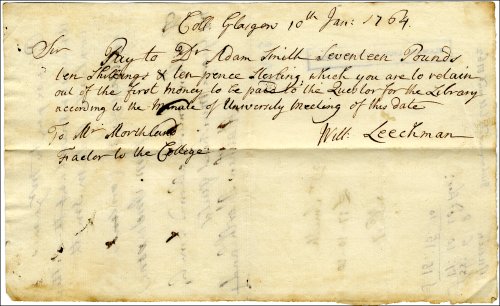 Coll: Glasgow 10th Jan: 1764
Sir Pay to Dr Adam Smith Seventeen Pounds
ten Shillings & ten pence Sterling, which you are to retain
out of the first money to be paid to the Quæstor for the Library
according to the Minute of University Meeting of this date
To Mr Morthland Will: Leechman
Factor to the College